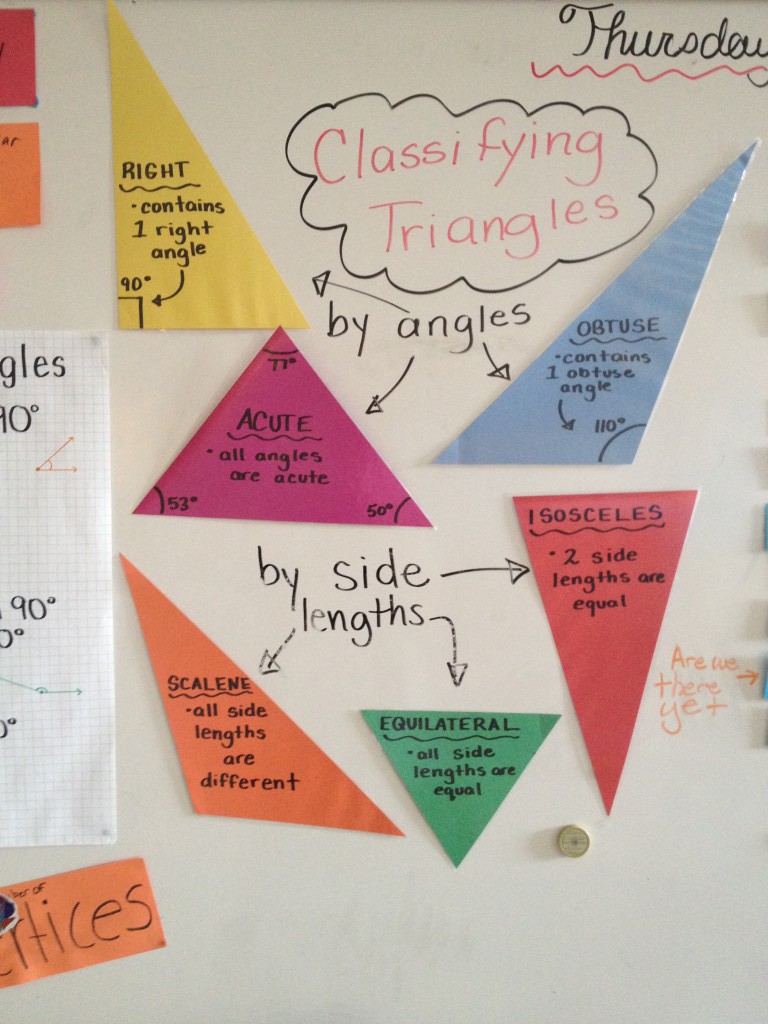 Thursday
Classifying
Triangles
RIGHT
• contains
1 right
angle
90°
by angles
OBTUSE
• contains
1 obtuse
angle
110°
77°
ACUTE
• all angles
are acute
53°
50°
gles
90°
90°
by side
lengths
ISOSCELES
• 2 side
lengths are
equal
SCALENE
• all side
lengths
are
different
EQUILATERAL
• all side
lengths are
equal
Are we
there
yet
ber of
tices